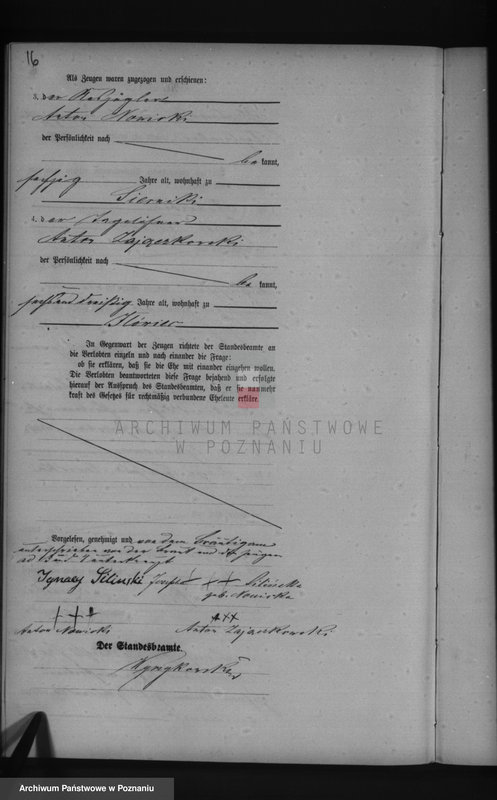 16
Als Zeugen waren zugezogen und erschienen:
3. der
Anton Nowicki
der Persönlichkeit nach
be kannt,
sechzig Jahre alt, wohnhaft zu
Siernicki
4. der Tagelöhner
Anton Zajaczkowski
der Persönlichkeit nach
be kannt,
sechsunddreißig Jahre alt, wohnhaft zu
In Gegenwart der Zeugen richtete der Standesbeamte an
die Verlobten einzeln und nach einander die Frage:
ob sie erklären, daß sie die Ehe mit einander eingehen wollen.
Die Verlobten beantworteten diese Frage bejahend und erfolgte
hierauf der Ausspruch des Standesbeamten, daß er sie nunmehr
kraft des Gesetzes für rechtmäßig verbundene Eheleute erkläre.
ARCHIWUM PAŃSTWOWE
W POZNANIU
Vorgelesen, genehmigt und von dem Bräutigam
unterschrieben von der Braut und den Zeugen
Ignacy Siliński Josepha +++ Silińska
geb. Nowicka
+++ +++
Anton Nowicki Anton Zajaczkowski
Der Standesbeamte.
Archiwum Państwowe w Poznaniu